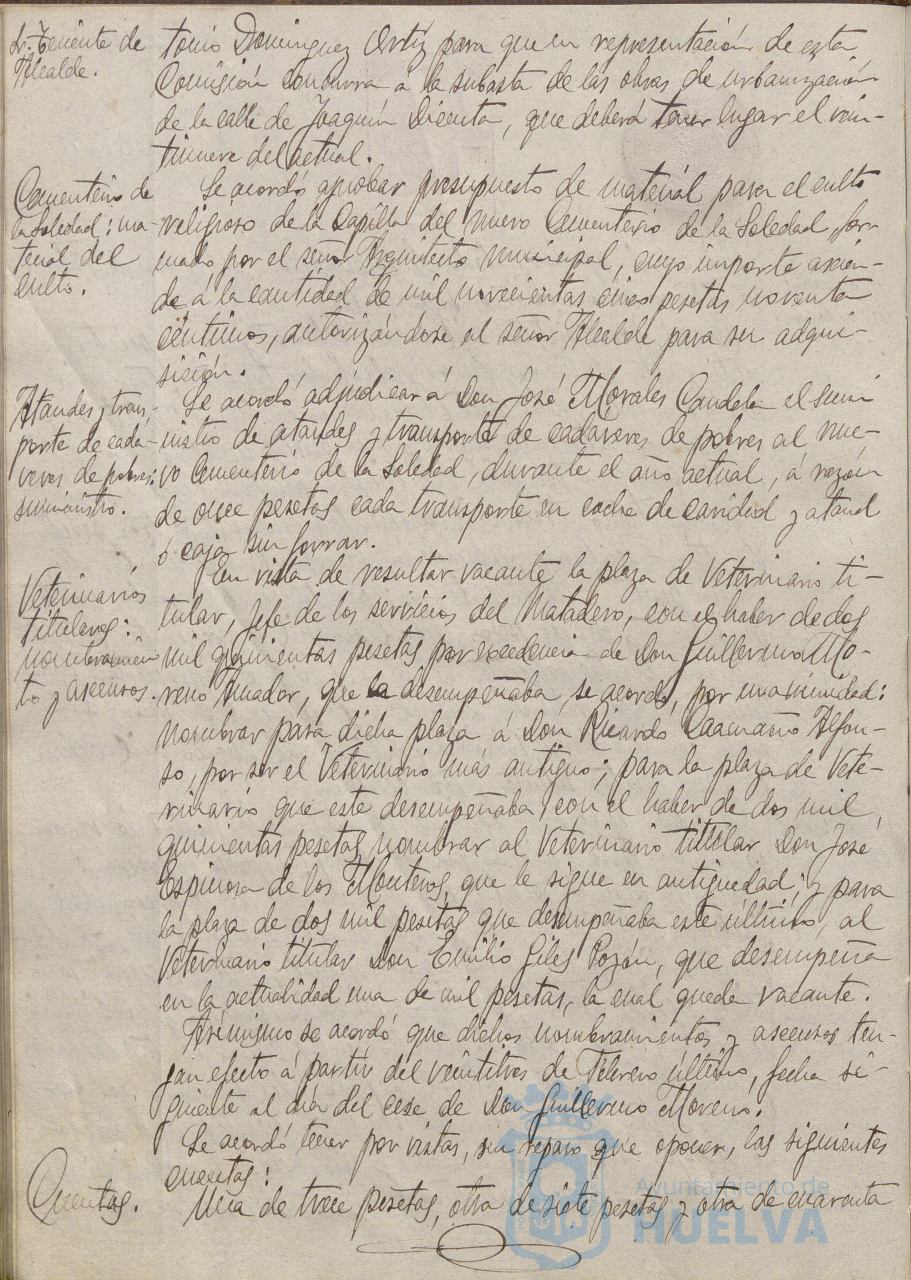 Sr. Teniente de
Alcalde.
tonio Dominguez Ortíz para que en representación de esta
Comisión concurra á la subasta de las obras de urbanización
de la calle de Joaquín Dicenta, que deberá tener lugar el vein-
tinueve del actual.
Cementerio de
la Soledad: ma-
terial del
culto.
Se acordó aprobar presupuesto de material para el culto
religioso de la Capilla del nuevo Cementerio de la Soledad, for-
mado por el señor Arquitecto municipal, cuyo importe ascien-
de á la cantidad de mil novecientas cinco pesetas noventa
céntimos, autorizándose al señor Alcalde para su adqui-
sición.
Ataudes y trans-
porte de cadá-
veres de pobres:
suministro.
Se acordó adjudicar á Don José Morales Candela el sumi
nistro de ataudes y transporte de cadáveres de pobres al nue-
vo Cementerio de la Soledad, durante el año actual, á razón
de once pesetas cada transporte en coche de caridad y ataud
ó caja sin forrar.
Veterinarios
titulares:
nombramien
to y ascensos.
En vista de resultar vacante la plaza de Veterinario ti-
tular, Jefe de los servicios del Matadero, con el haber de dos
mil quinientas pesetas por excedencia de Don Guillermo Mo-
reno Amador, que la desempeñaba, se acordó, por unanimidad:
Nombrar para dicha plaza á Don Ricardo Caamaño Alfon-
so, por ser el Veterinario más antiguo; para la plaza de Vete-
rinario que este desempeñaba, con el haber de dos mil
quinientas pesetas, nombrar al Veterinario titular Don José
Espinosa de los Monteros, que le sigue en antiguedad; y para
la plaza de dos mil pesetas que desempeñaba este último, al
Veterinario titular Don Emilio Giles Pozón, que desempeña
en la actualidad una de mil pesetas, la cual queda vacante.
Asimismo se acordó que dichos nombramientos y ascensos ten-
gan efecto á partir del veintitres de Febrero último, fecha si-
guiente al día del cese de Don Guillermo Moreno.
Se acordó tener por vistas, sin reparo que oponer, las siguientes
cuentas:
Cuentas.
Una de trece pesetas, otra de siete pesetas y otra de cuarenta
Ayuntamiento de
HUELVA